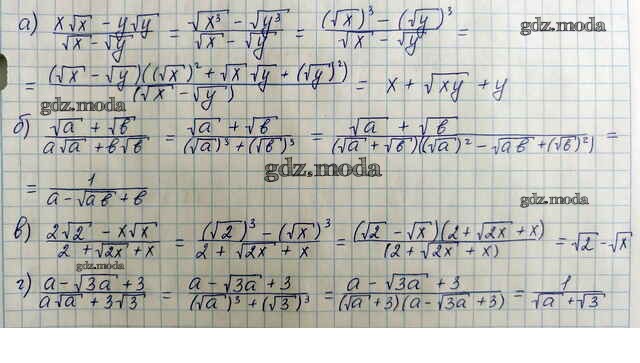 а) (x√x - y√y)/(√x - √y) = (√x³ - √y³)/(√x - √y) = ((√x)³ - (√y)³)/(√x - √y) =
gdz.moda
= ((√x - √y)((√x)² + √x √y + (√y)²))/((√x - √y)) = x + √xy + y
gdz.moda
б) (√a + √b)/(a√a + b√b) = (√a + √b)/((√a)³ + (√b)³) = (√a + √b)/((√a + √b)((√a)² - √ab + (√b)²)) =
gdz.moda
= 1/(a - √ab + b)
gdz.moda
в) (2√2 - x√x)/(2 + √2x + x) = ((√2)³ - (√x)³)/(2 + √2x + x) = ((√2 - √x)(2 + √2x + x))/((2 + √2x + x)) = √2 - √x
gdz.moda
г) (a - √3a + 3)/(a√a + 3√3) = (a - √3a + 3)/((√a)³ + (√3)³) = (a - √3a + 3)/((√a + 3)(a - √3a + 3)) = 1/(√a + √3)